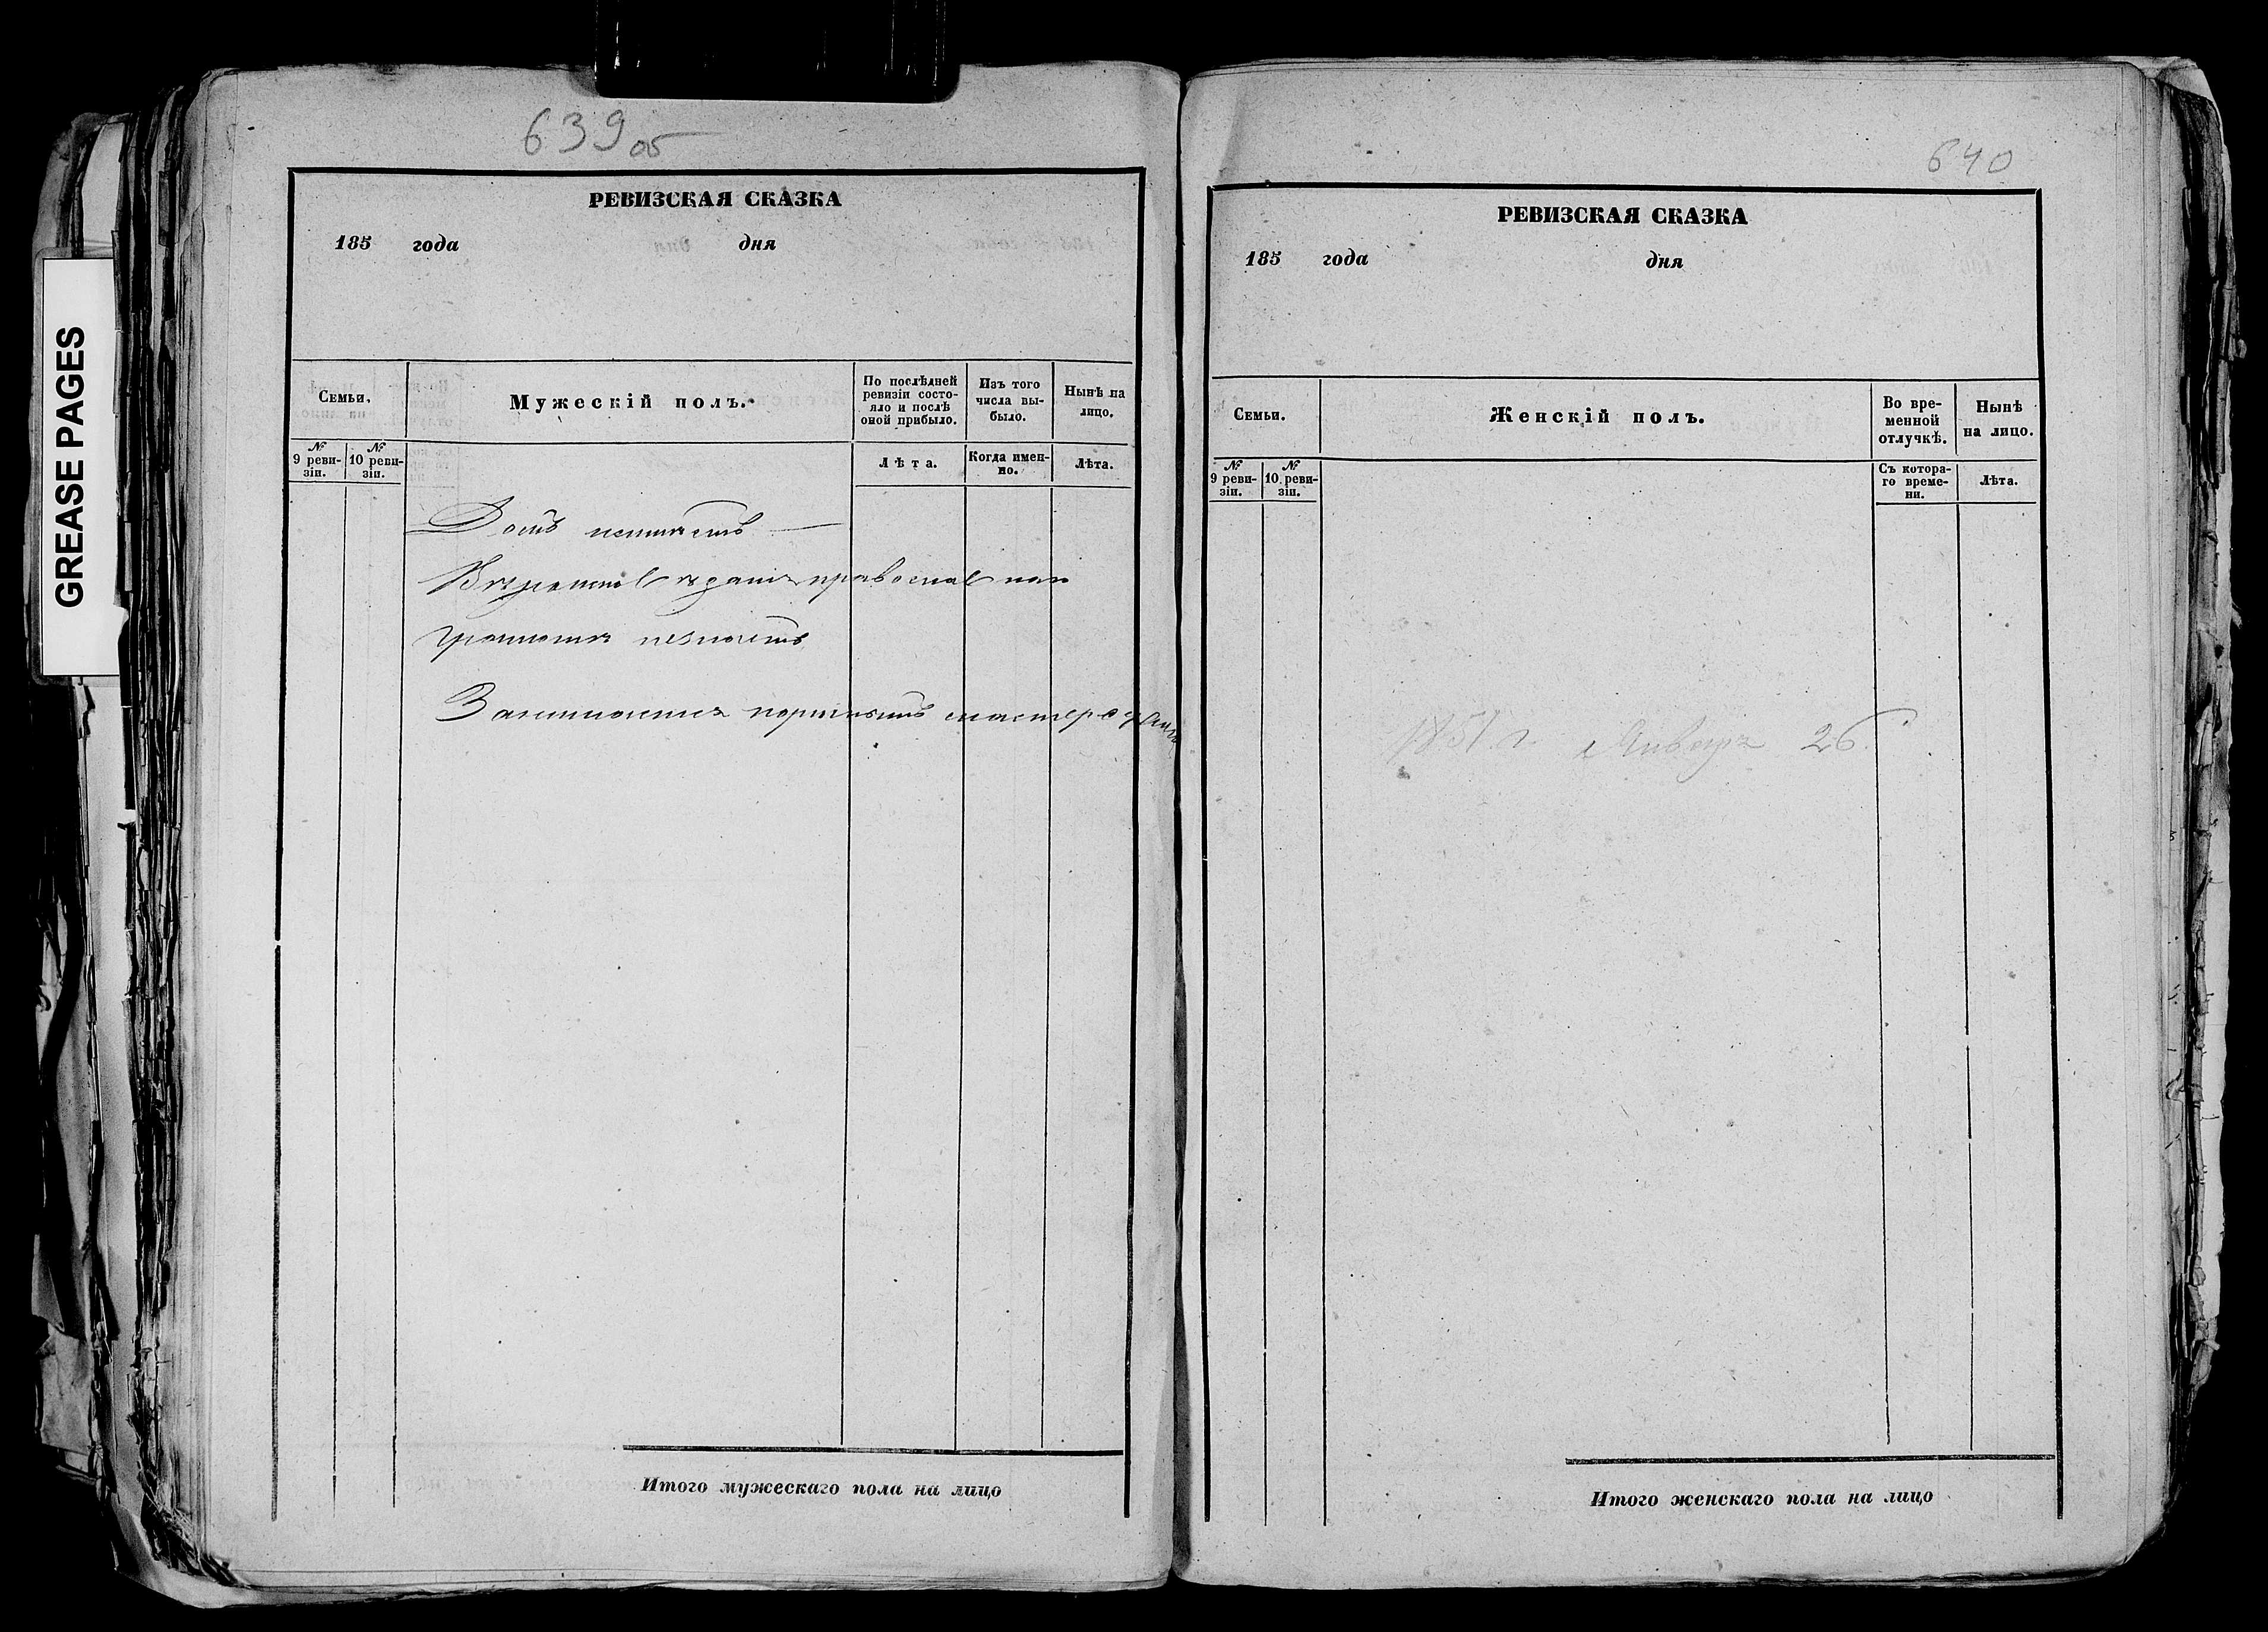 GREASE PAGES
639 об
РЕВИЗСКАЯ СКАЗКА
185 года дня
Семьи.
Мужескій полъ.
По послѣдней ревизіи состо-
яло и послѣ
оной прибыло.
Изъ того
числа вы-
было.
Нынѣ на
лицо.
№
9 реви-
зіи.
№
10 реви-
зіи.
Лѣта.
Когда имен-
но.
Лѣта.
Домъ
православ
грамоты незнаетъ
Занимается
Итого мужескаго пола на лицо
640
РЕВИЗСКАЯ СКАЗКА
185 года дня
Семьи.
Женскій полъ.
Во вре-
менной
отлучкѣ.
Нынѣ
на лицо.
№
9 реви-
зіи.
№
10 реви-
зіи.
Съ котора-
го време-
ни.
Лѣта.
1851 г. Января 26.
Итого женскаго пола на лицо